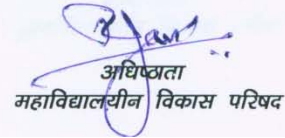 अधिष्ठाता
महाविद्यालयीन विकास परिषद